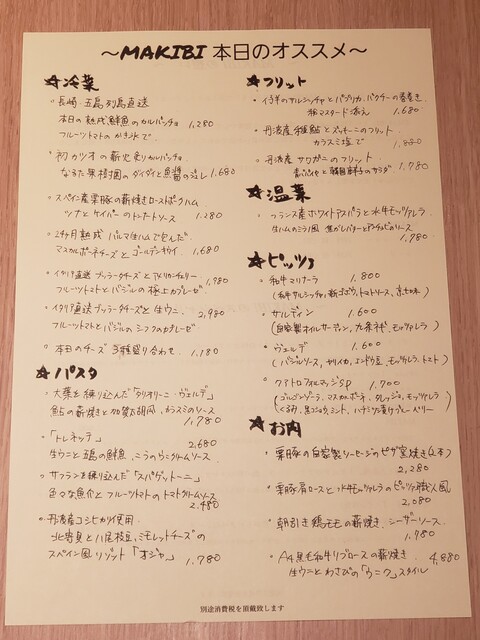 ～MAKIBI 本日のオススメ～
☆冷菜
・長崎・五島列島直送
本日の熟成鮮魚のカルパッチョ 1,280
フルーツトマトのかき氷で
・初カツオの薪火炙りカルパッチョ
なるた果樹園のダイダイと魚醤のジュレ 1,680
・スペイン産栗豚の薪焼きローストポークハム
ツナとケイパーのトンナートソース 1,280
・24ヶ月熟成 パルマ生ハムで包んだ
マスカルポーネチーズとゴールデンキウイ 1,680
・イタリア直送ブッラータチーズとアメリカンチェリー
フルーツトマトとバジルの極上カプレーゼ 1,980
・イタリア直送ブッラータチーズと生ウニ 2,980
フルーツトマトとバジルのカプレーゼ
・本日のチーズ 3種盛り合わせ 1,180
☆パスタ
・大葉を練り込んだ「タリオリーニ・ヴェルデ」
鮎の薪焼きと加賀太胡瓜、カラスミのソース
1,780
・「トレネッテ」 2,680
生ウニと五島の鮮魚、クリームソース
・サフランを練り込んだ「スパゲットーニ」
色々な魚介とフルーツトマトのトマトクリームソース
2,480
・丹波産コシヒカリ使用
北寄貝と八尾枝豆、ミモレットチーズの
スペイン風リゾット「オジャ」 1,780
☆フリット
・仔羊のサルシッチャとパプリカ、パクチーの春巻き
粒マスタード添え 1,680
・丹波産稚鮎とズッキーニのフリット
カラスミ塩で
・丹波産 サワガニのフリット 1,780
青パパイヤと韓国唐辛子のサラダ
☆温菜
・フランス産ホワイトアスパラと水牛モッツァレラ
生ハムのミラノ風 焦がしバターとアンチョビのソース
1,980
☆ピッツァ
・和牛マリナーラ 1,800
(和牛サルシッチャ、新ゴボウ、トマトソース、京七味)
・サルディン 1,600
(自家製オイルサーディン、九条ネギ、モッツァレラ)
・ヴェルデ 1,600
(バジルソース、ヤリイカ、エンドウ豆、モッツァレラ、トマト)
・クアトロフォルマッジSP 1,700
(ゴルゴンゾーラ、マスカルポーネ、タレッジョ、モッツァレラ
くるみ、黒コショウ、ミント、ハチミツ漬けブルーベリー)
☆お肉
・栗豚の自家製ソーセージのピザ窯焼き(2本)
2,280
・栗豚肩ロースと水牛モッツァレラのピッツァ職人風
2,080
・朝引き鶏モモの薪焼き、シーザーソース
1,780
・A4黒毛和牛リブロースの薪焼き 4,880
生ウニとわさびの「ウニク」スタイル
別途消費税を頂戴致します